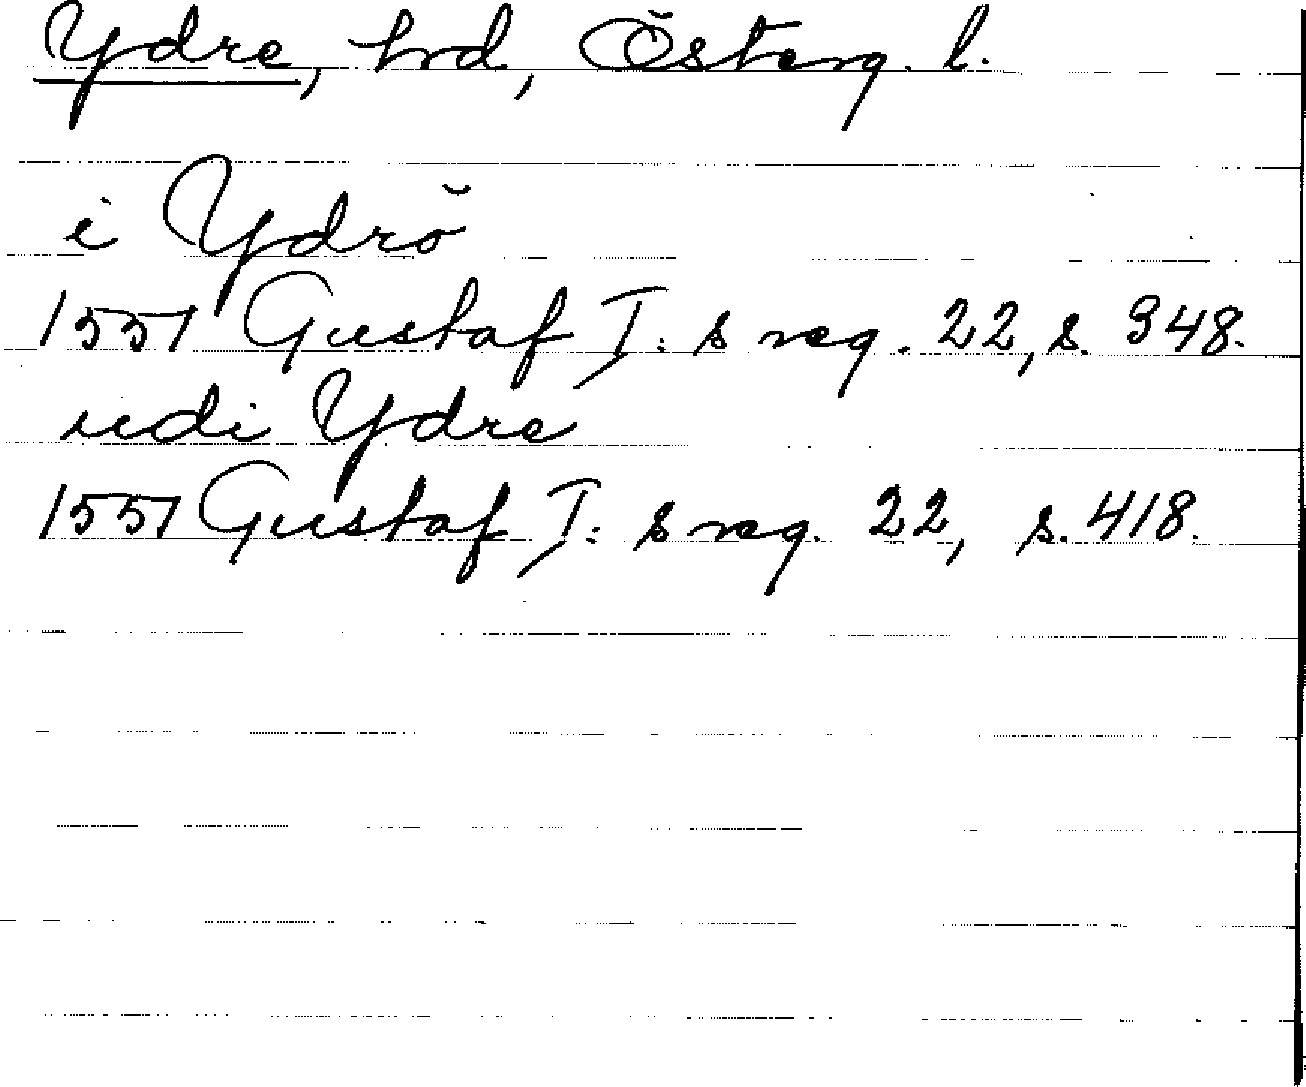 Ydre, hrd, Österg. l.
i Ydrö
1551 Gustaf I: s reg. 22, s. 348.
udi Ydre
1551 Gustaf I: s reg. 22, s. 418.